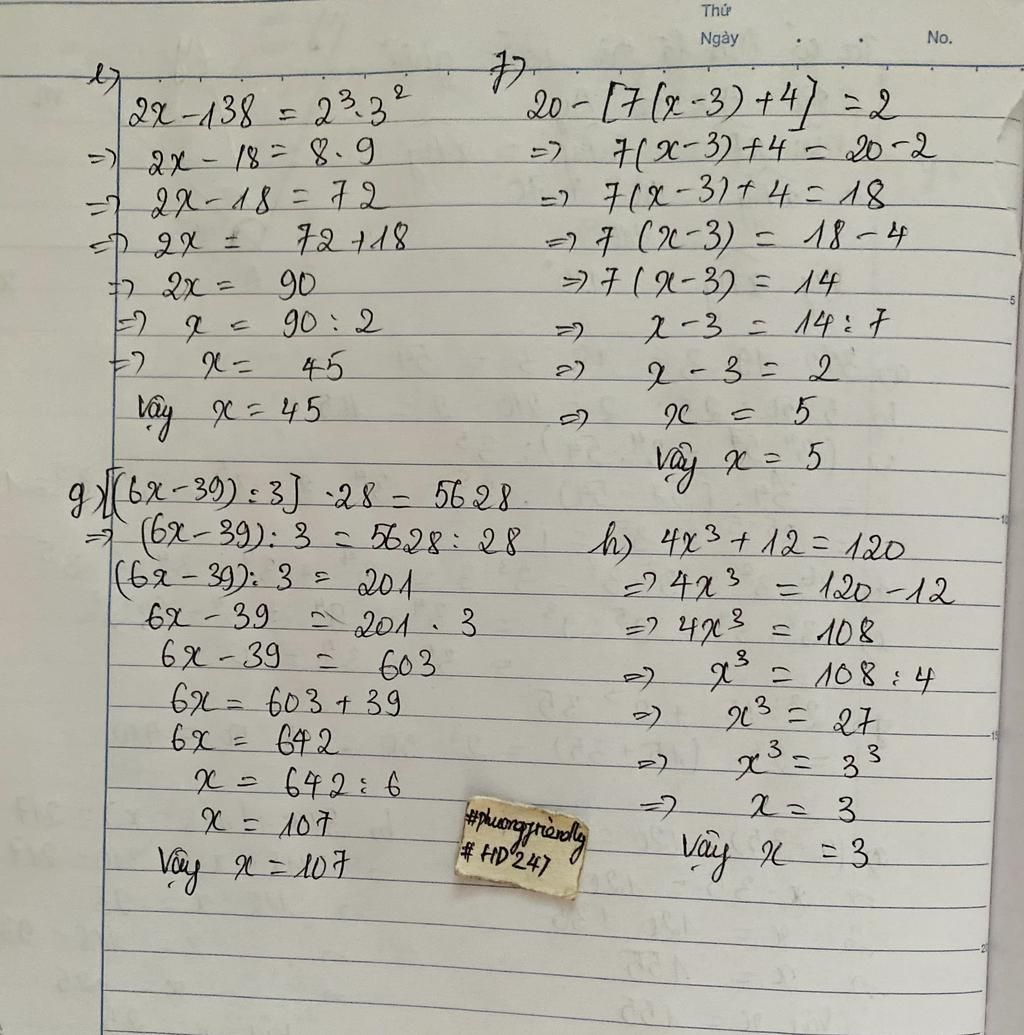 Thứ
Ngày . . No.
e)
2x - 138 = 2³.3²
=> 2x - 18 = 8.9
=> 2x - 18 = 72
=> 2x = 72 + 18
=> 2x = 90
=> x = 90 : 2
=> x = 45
Vậy x = 45
f)
20 - [7(x-3)+4] = 2
=> 7(x-3)+4 = 20-2
=> 7(x-3)+4 = 18
=> 7(x-3) = 18-4
=> 7(x-3) = 14
=> x-3 = 14:7
=> x-3 = 2
=> x = 5
Vậy x = 5
g) [(6x-39):3].28 = 5628
=> (6x-39):3 = 5628:28
(6x-39):3 = 201
6x-39 = 201.3
6x-39 = 603
6x = 603+39
6x = 642
x = 642:6
x = 107
Vậy x = 107
h) 4x³+12 = 120
=> 4x³ = 120-12
=> 4x³ = 108
=> x³ = 108:4
=> x³ = 27
=> x³ = 3³
=> x = 3
Vậy x = 3
#HD247
5
10
15